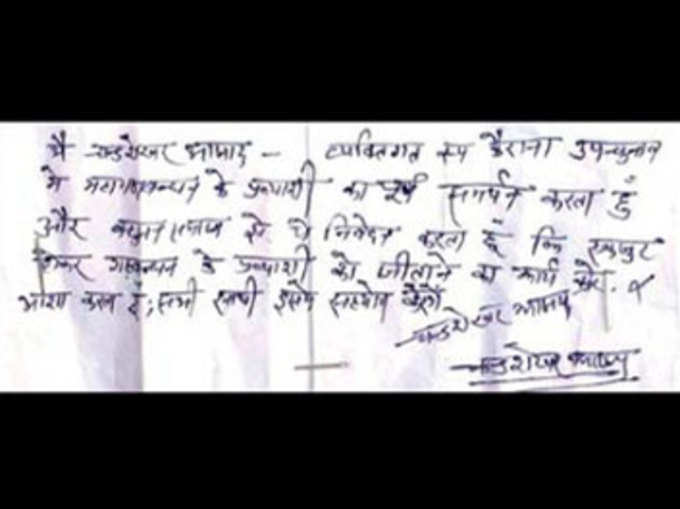 मै चन्द्रशेखर आजाद - व्यक्तिगत रूप कैराना उपचुनाव
मे महागठबन्धन के प्रत्याशी का पूर्ण समर्थन करता हुं
और बहुजन समाज से ये निवेदन करता हूं कि एकजुट
होकर गठबन्धन के प्रत्याशी को जीताने का कार्य करे.
आशा करता हूं, सभी साथी इसमे सहयोग करेगें
चन्द्रशेखर आजाद
चन्द्रशेखर आजाद